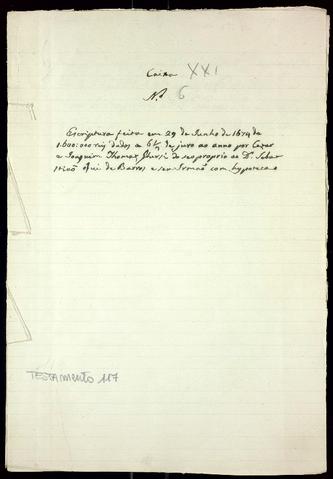 Caixa XXI
Nº 6
Escriptura feita em 29 de Junho de 1674 de
1.600:000 reis dados a 6¼ de juro ao anno por Cezar
e Joaquim Thomaz de seo proprio ao Dr. Sebas
tião Rui de Barros e seu Irmão com hypoteca
TESTAmento 117